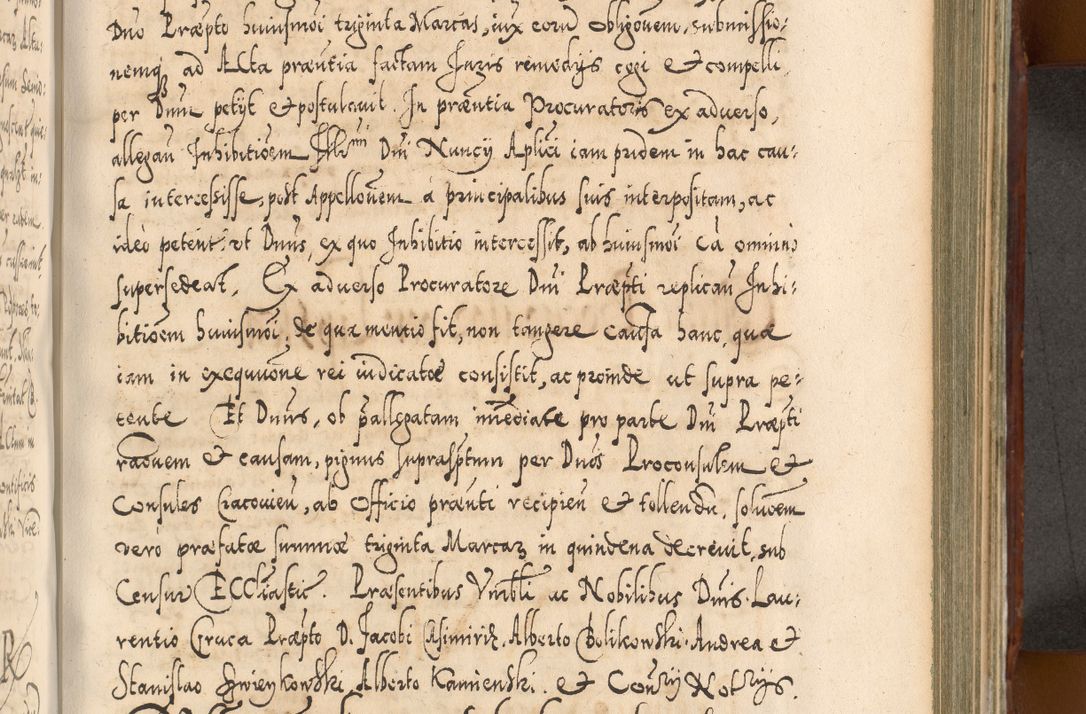 Dno Præpto huiusmoi triginta Marcas, iux eorũ obligõem, submissio:
nemq ad Acta præntia factam Iuris remedijs cogi et compelli
per Dnũ petijt et postulavit. In præntia Procuratoris ex adverso,
allegan̄ Inhibitioem Illmi Dni Nuncij Aplici iam pridem in hac cau:
sa intercessisse, post Appellõnem à principalibus suis interpositam, ac
ideo petent: ut Dnus, ex quo Inhibitio intercessit, ab huiusmoi cã omnino
supersedeat. Ex adverso Procuratore Dni Præpti replicañ Inhi:
bitioem huiusmoi, de qua mentio fit, non tangere causa hanc, quæ
iam in exequuõne rei iudicatæ consistit, ac proinde ut supra pe:
tente Et Dnus, ob pallegatam im̃ediate pro parte Dni Præpti
rãonem et causam, pignus suprasptum per Dnos Proconsulem et
Consules Cracovien̄, ab officio prænti recipien̄ et tollendũ, soluõem
vero præfatæ summæ triginta Marcar in quindena decrevit, sub
Censur Eccliastic. Præsentibus Vnbli ac Nobilibus Dnis Lau:
rentio Gruca Præpto D. Jacobi Casimirie. Alberto Bolikowski. Andrea et
Stanislao Swienykowski Alberto Kamienski. et Consrij Notrijs.